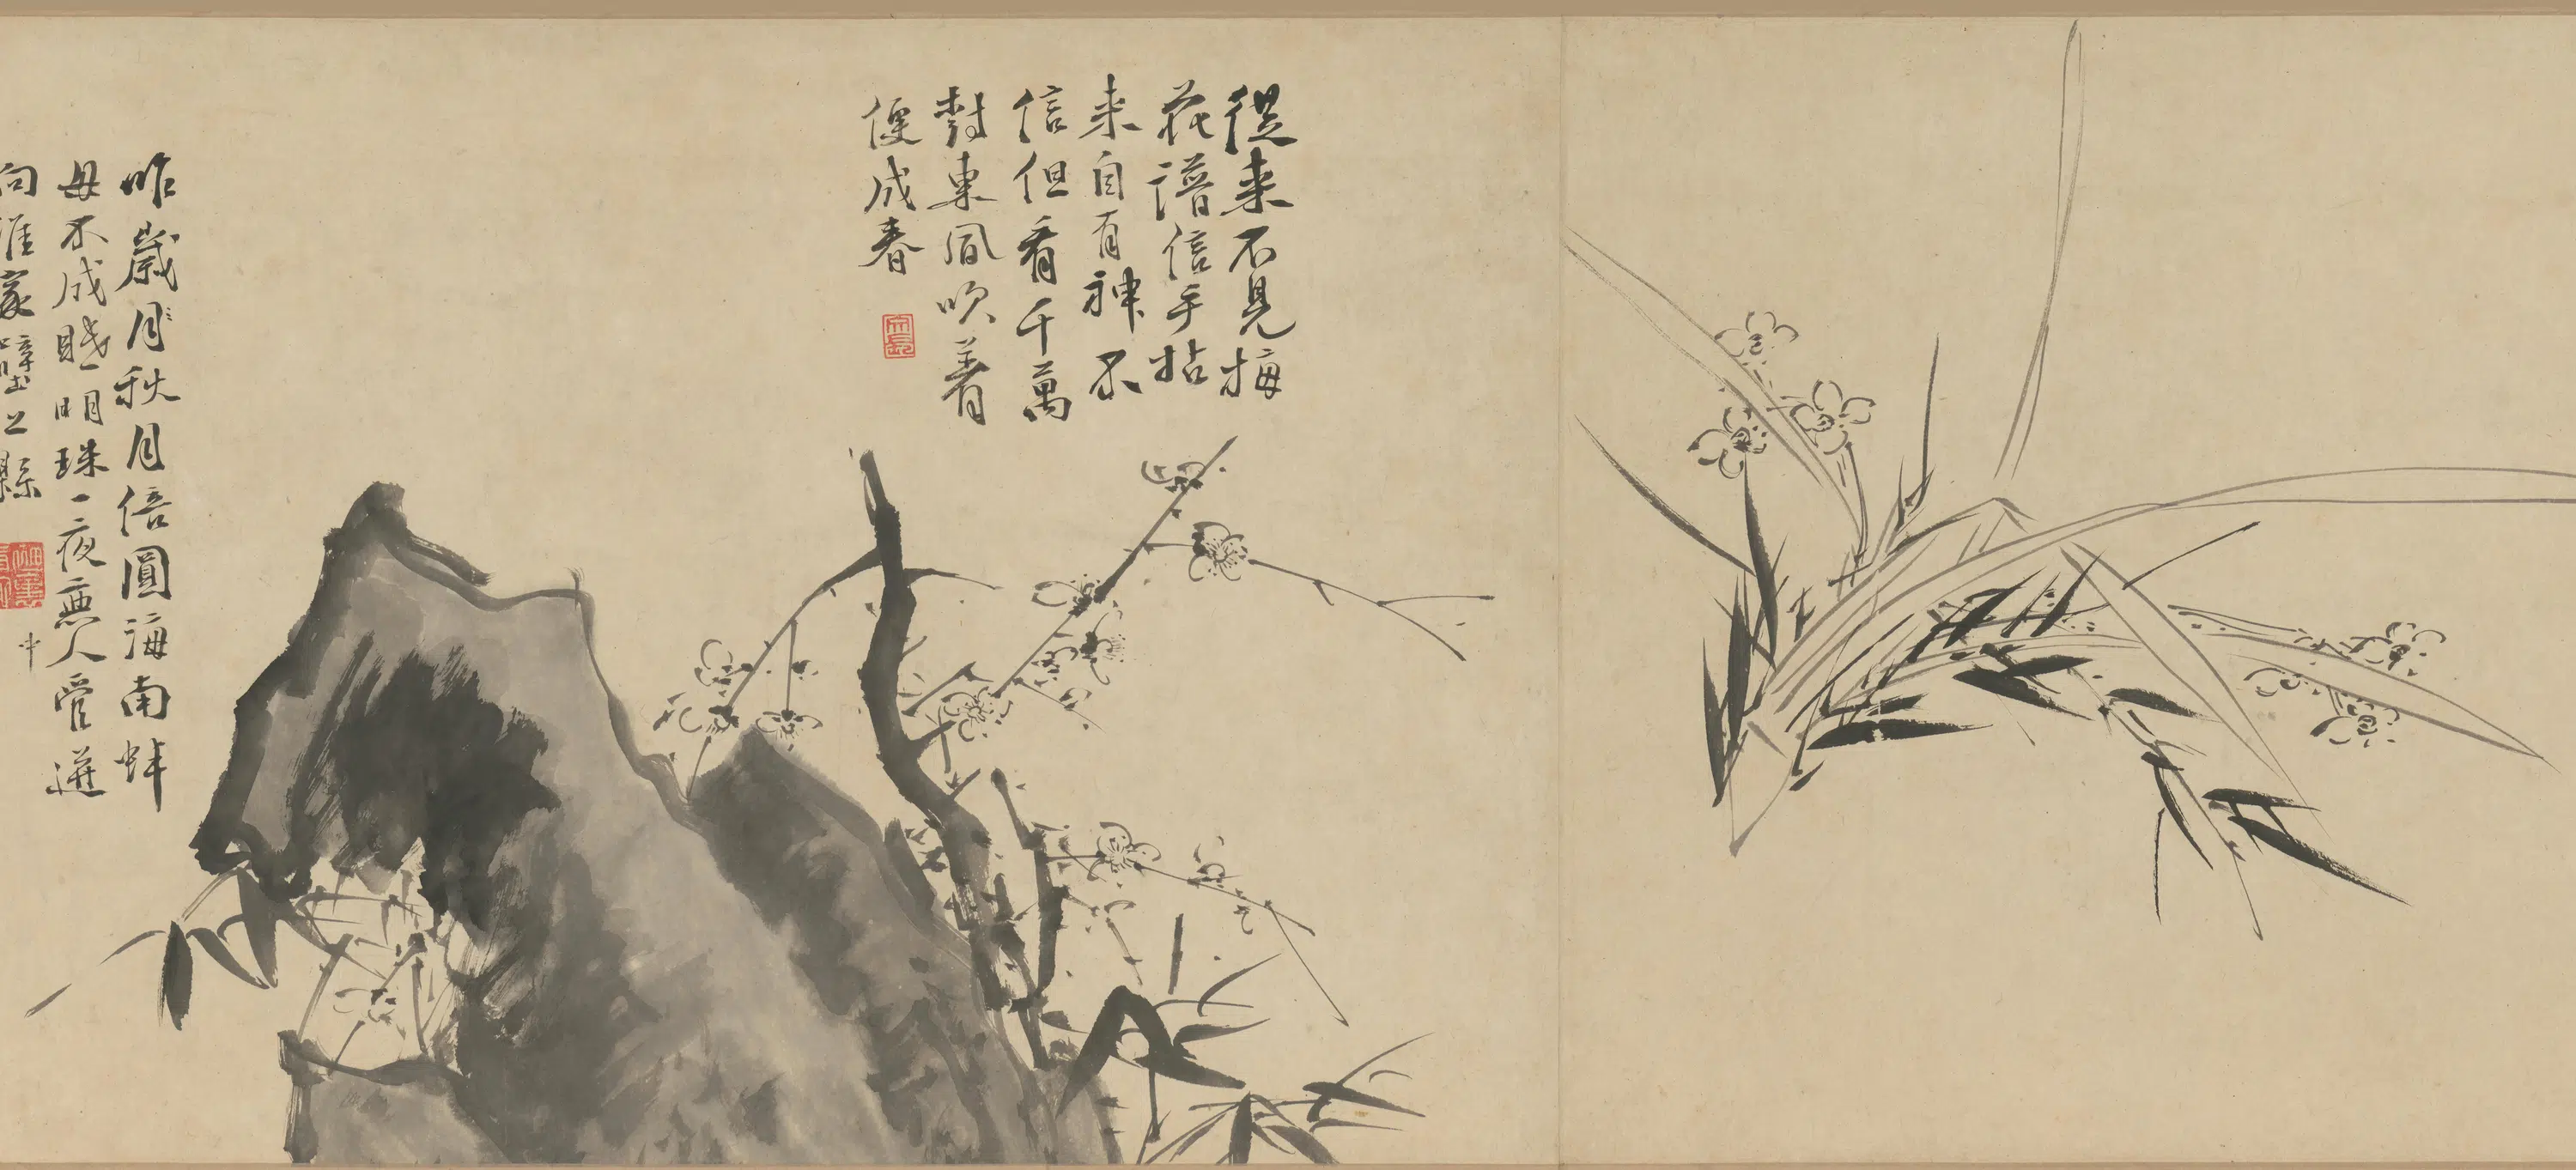 從来不見梅
花譜信手拈
来自有神不
信但看千萬
樹東風吹著
便成春
昨歲月秋月倍圓海南蚌
母不成眠明珠一夜無人管迸
向誰家壁上縣
中